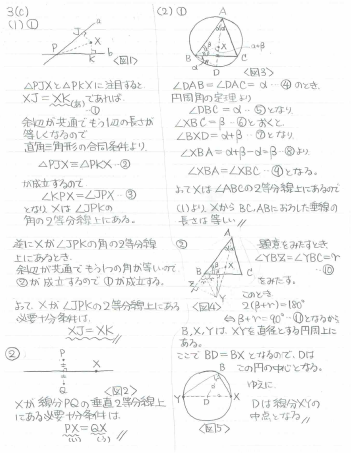 3(C)
(1)①
a
J
X
P
K
b
<図1>
△PJXと△PKXに注目すると
XJ=XK (あ) であれば
…①
斜辺が共通でもう1辺の長さが
等しくなるので
直角三角形の合同条件より、
△PJX≡△PKX…②
が成立するので
∠KPX=∠JPX…③
となり、Xは∠JPKの
角の2等分線上にある。
逆にXが∠JPKの角の2等分線
上にあるとき、
斜辺が共通でもう1つの角が等しいので
②が成立するので①が成立する。
よって、Xが∠JPKの2等分線上にある
必要十分条件は、
XJ=XK
②
P
X
Q
<図2>
Xが線分PQの垂直2等分線上
にある必要十分条件は
PX=QX
(い) (う)
(2)①
A
X
B
C
D
α+β
<図3>
∠DAB=∠DAC=α…④のとき、
円周角の定理より
∠DBC=α…⑤となり
∠XBC=β…⑥とおくと
∠BXD=α+β…⑦となり
∠XBA=α+β-α=β…⑧より
∠XBA=∠XBC…⑨となる。
よってXは∠ABCの2等分線上にあるので
(1)より、XからBC,ABにおろした垂線の
長さは等しい
②
A
X
B
C
D
Y
Z
<図4>
題意をみたすとき
∠YBZ=∠YBC=γ
…⑩
をみたす。
このとき
2(β+γ)=180°
⇔β+γ=90°…⑪となるから
B,X,Yは、XYを直径とする円周上に
ある。
ここでBD=BXとなるので、Dは
この円の中心となる。
B
Y
D
X
<図5>
ゆえに
Dは線分XYの
中点となる